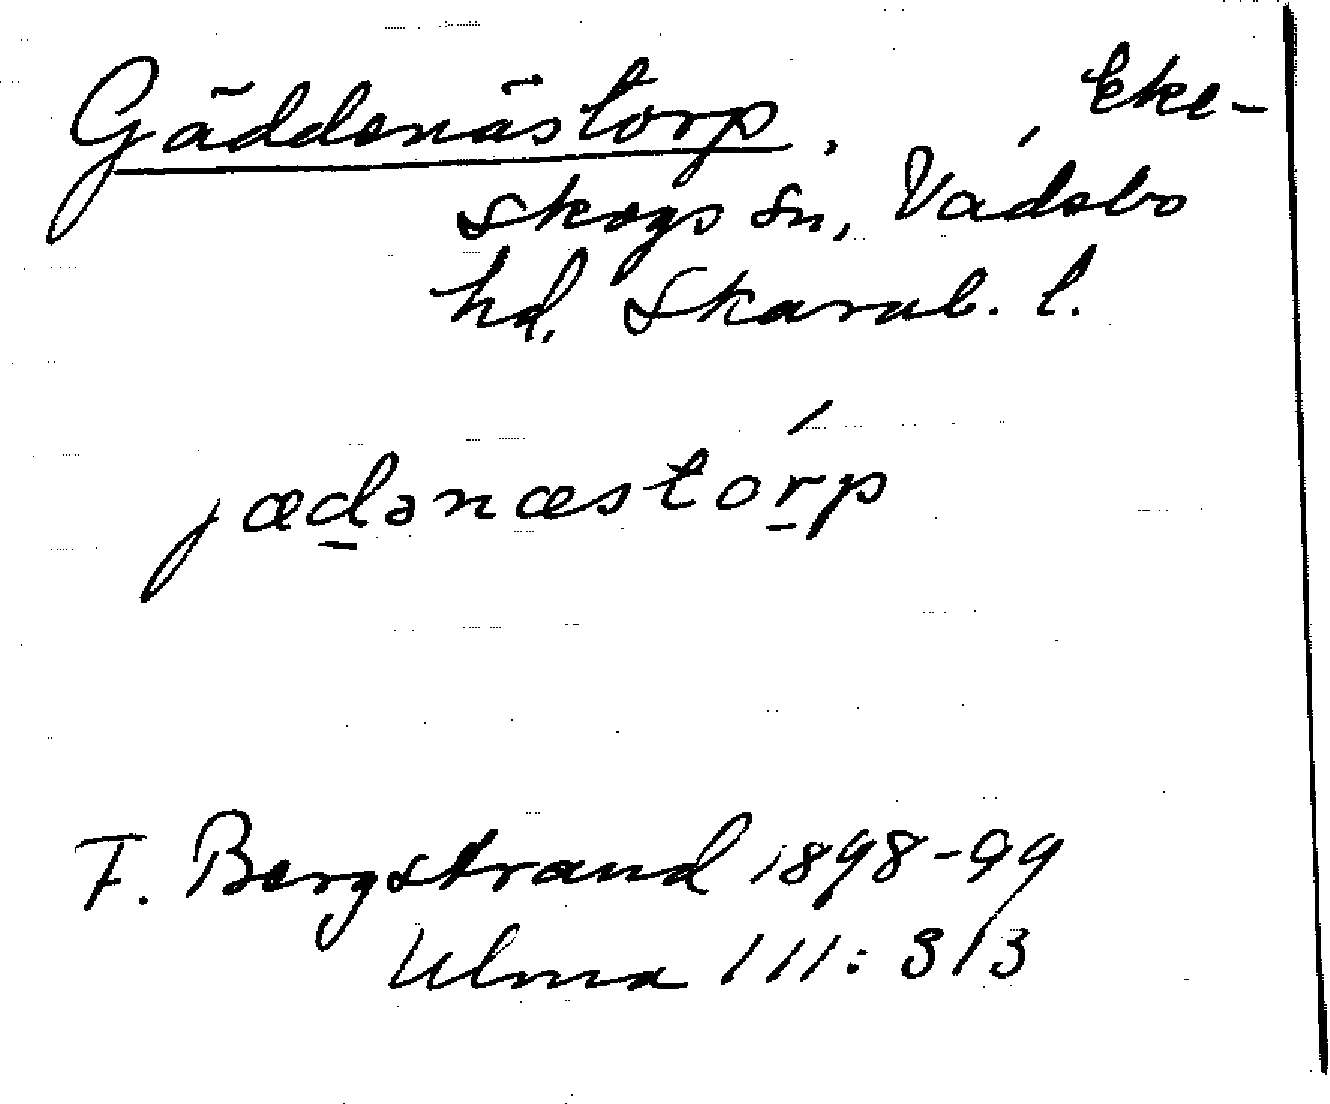 Gäddenästorp, Eke-
skogs sn, Vadsbo
hd, Skarab. l.
jæd̲ənæstór̲p
F. Bergstrand 1898-99
Ulma 111: 313